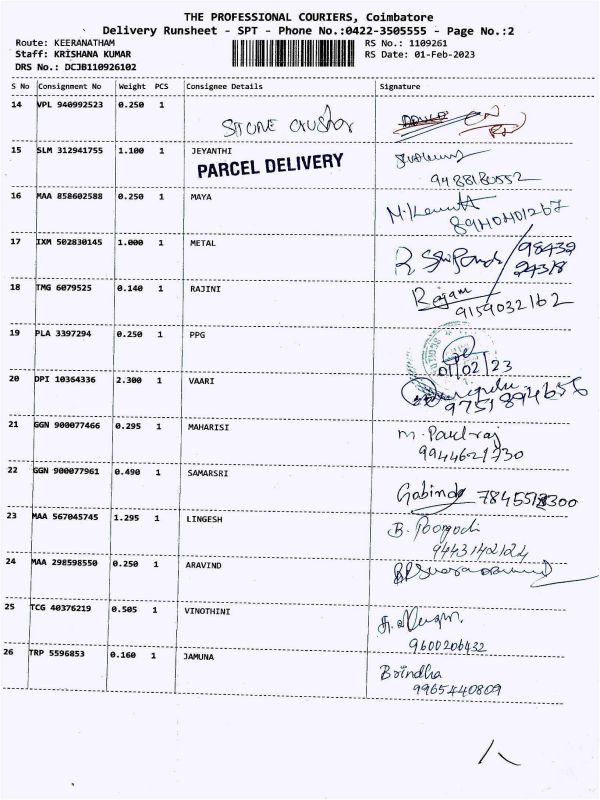 THE PROFESSIONAL COURIERS, Coimbatore
Delivery Runsheet - SPT - Phone No.:0422-3505555 - Page No.:2
Route: KEERANATHAM RS No.: 1109261
Staff: KRISHANA KUMAR RS Date: 01-Feb-2023
DRS No.: DCJB110926102
S No Consignment No Weight PCS Consignee Details Signature
14 VPL 940992523 0.250 1 STONE crusher
15 SLM 312941755 1.100 1 JEYANTHI
PARCEL DELIVERY
9488180552
16 MAA 858602588 0.250 1 MAYA
17 IXM 502830145 1.000 1 METAL
98432
24318
18 TMG 6079525 0.140 1 RAJINI Rajam
9159032162
19 PLA 3397294 0.250 1 PPG
01/02/23
20 DPI 10364336 2.300 1 VAARI
9751894656
21 GGN 900077466 0.295 1 MAHARISI M. Paulraj
9944621730
22 GGN 900077961 0.490 1 SAMARSRI
Gabind
23 MAA 567045745 1.295 1 LINGESH B. Poogodi
9443142124
24 MAA 298598550 0.250 1 ARAVIND
25 TCG 40376219 0.505 1 VINOTHINI
9600206432
26 TRP 5596853 0.160 1 JAMUNA Brindha
9965440809